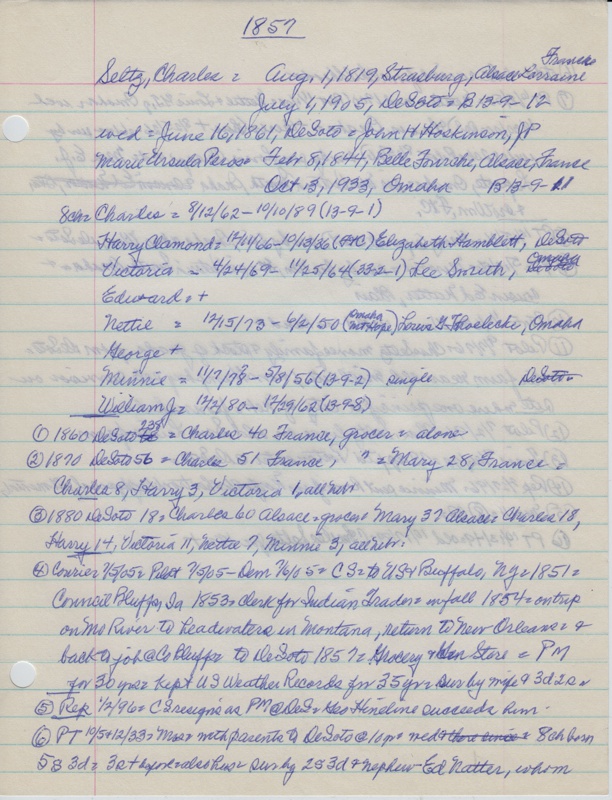 1857
France
Seltz, Charles = Aug, 1, 1819, Strasburg, Alsace Lorraine
July 1, 1905, DeSoto = B 13-9-12
wed = June 16, 1861, DeSoto = John H Hoskinson, JP
Marie Ursula Peros = Feb 8, 1844, Belle Fourche, Alsace, France
Oct 3, 1933, Omaha B 13-9-11
8ch = Charles = 8/12/62 - 10/10/89 (13-9-1)
Harry Clamond = 12/11/66 - 10/13/36 (FtC) Elizabeth Hamblett, DeSoto
Victoria = 4/24/69 - 11/25/64 (23-2-1) Lee Smith, Omaha
Edward = +
Nettie = 12/15/73 - 6/2/50 (Omaha mt Hope) Louis G Thoelecke, Omaha
George +
Minnie = 11/7/78 - 5/8/56 (13-9-2) single DeSoto
William J = 12/2/80 - 12/29/62 (13-9-8)
① 1860 DeSoto 235 = Charles 40 France, grocer = alone
② 1870 DeSoto 56 = Charles 51 France, " = Mary 28, France =
Charles 8, Harry 3, Victoria 1, all Neb
③ 1880 DeSoto 18 = Charles 60 Alsace = grocer = Mary 37 Alsace = Charles 18,
Harry 14, Victoria 11, Nettie 7, Minnie 3, all Neb =
④ Courier 7/5/05 = Pilot 7/5/05 - Dem 7/6/05 = CS = to US = Buffalo, NY = 1851 =
Council Bluffs, Ia 1853 = clerk for Indian Trader = in fall 1854 = on trip
on Mo River to headwaters in Montana, return to New Orleans = &
back to job @ Co Bluffs to DeSoto 1857 = Grocery & Gen Store = PM
for 30 yrs = kept US Weather Records for 35 yr = sur by wife & 3d 2s =
⑤ Rep 12/96 = CS resigns as PM @ DeS = Geo Hineline succeeds him =
⑥ PT 10/5 & 12/33 = Mrs = with parents to DeSoto @ 10 yr = wed = 8ch born
5s 3d = 3s + = also hus = sur by 2s 3d & nephew Ed Natter, whom